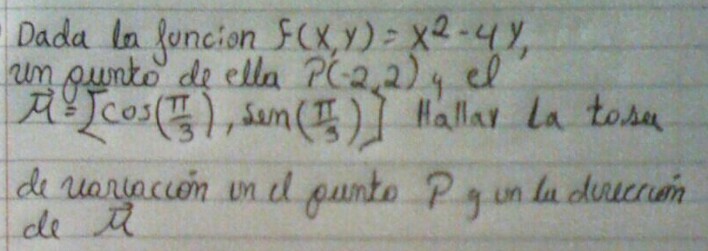 Dada la funcion f(x,y) = x² - 4y,
un punto de ella P(-2,2) y el
μ⃗ = [cos(π/3), sen(π/3)] Hallar La tasa
de variación en el punto P y en la dirección
de μ⃗